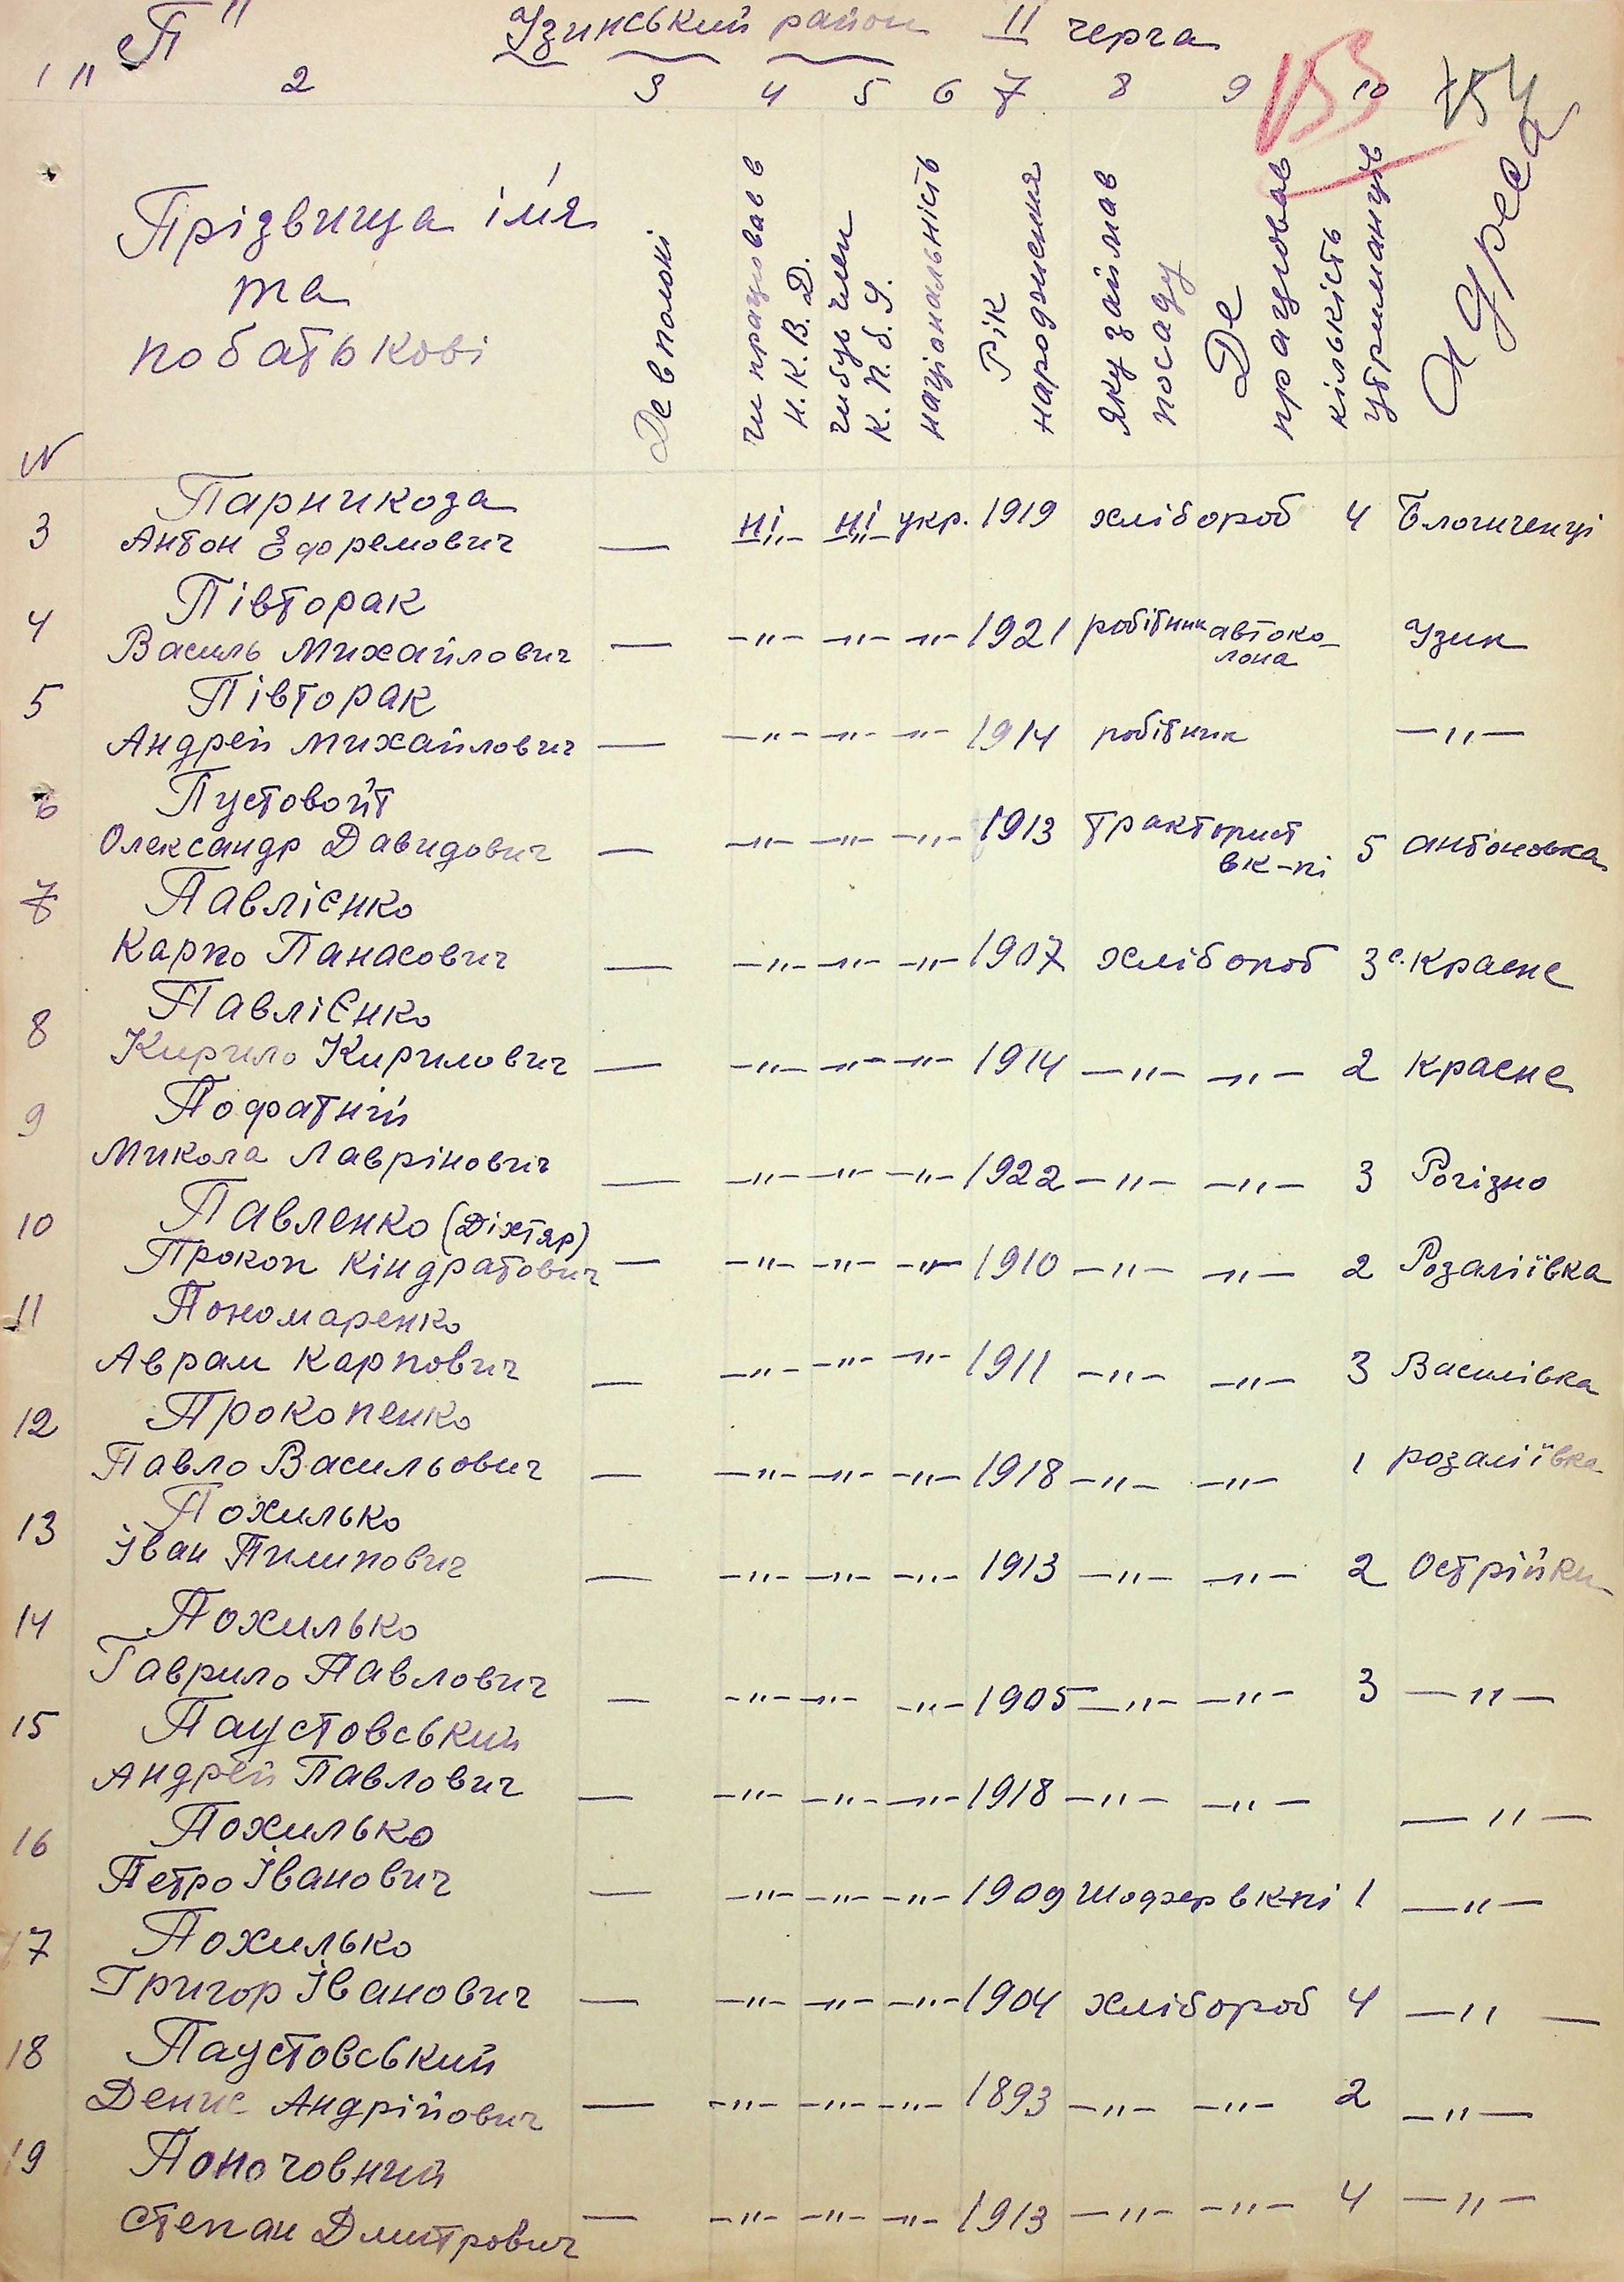 "П" Узинський район II черга
1 2 3 4 5 6 7 8 9 10 11
153 154
N
Прізвища ім'я
та
побатькові
Де в полоні
чи працював в
Н.К.В.Д.
чи був член
К.П.б.У.
національність
Рік
народження
яку займав
посаду
Де
працював
кількість
утриманців
Адреса
Парникоза
3 Антон Ефремович — ні ні укр. 1919 хлібороб 4 Блощенці
Півторак
4 Василь Михайлович — —"— —"— —"— 1921 робітник автоко-
лона Узин
5 Півторак
Андрей Михайлович — —"— —"— —"— 1914 робітник —"—
6 Пустовойт
Олександр Давидович — —"— —"— —"— 1913 тракторист
в к-пі 5 Антоновка
7 Павлієнко
Карпо Панасович — —"— —"— —"— 1907 хлібороб 3 с. Красне
Павлієнко
8 Кирило Кирилович — —"— —"— —"— 1914 —"— —"— 2 Красне
9 Пофатній
Микола Лаврінович — —"— —"— —"— 1922 —"— —"— 3 Рогізно
10 Павленко (Діхтяр)
Прокоп Кіндратович — —"— —"— —"— 1910 —"— —"— 2 Розаліївка
11 Пономаренко
Аврам Карпович — —"— —"— —"— 1911 —"— —"— 3 Василівка
12 Прокопенко
Павло Васильович — —"— —"— —"— 1918 —"— —"— 1 розаліївка
13 Похилько
Іван Пилипович — —"— —"— —"— 1913 —"— —"— 2 Острійки
14 Похилько
Гаврило Павлович — —"— —"— —"— 1905 —"— —"— 3 —"—
15 Паустовський
Андрей Павлович — —"— —"— —"— 1918 —"— —"— —"—
16 Похилько
Петро Іванович — —"— —"— —"— 1909 Шофер в к-пі 1 —"—
17 Похилько
Григор Іванович — —"— —"— —"— 1904 хлібороб 4 —"—
18 Паустовський
Денис Андрійович — —"— —"— —"— 1893 —"— —"— 2 —"—
19 Поночовний
Степан Дмитрович — —"— —"— —"— 1913 —"— —"— 4 —"—